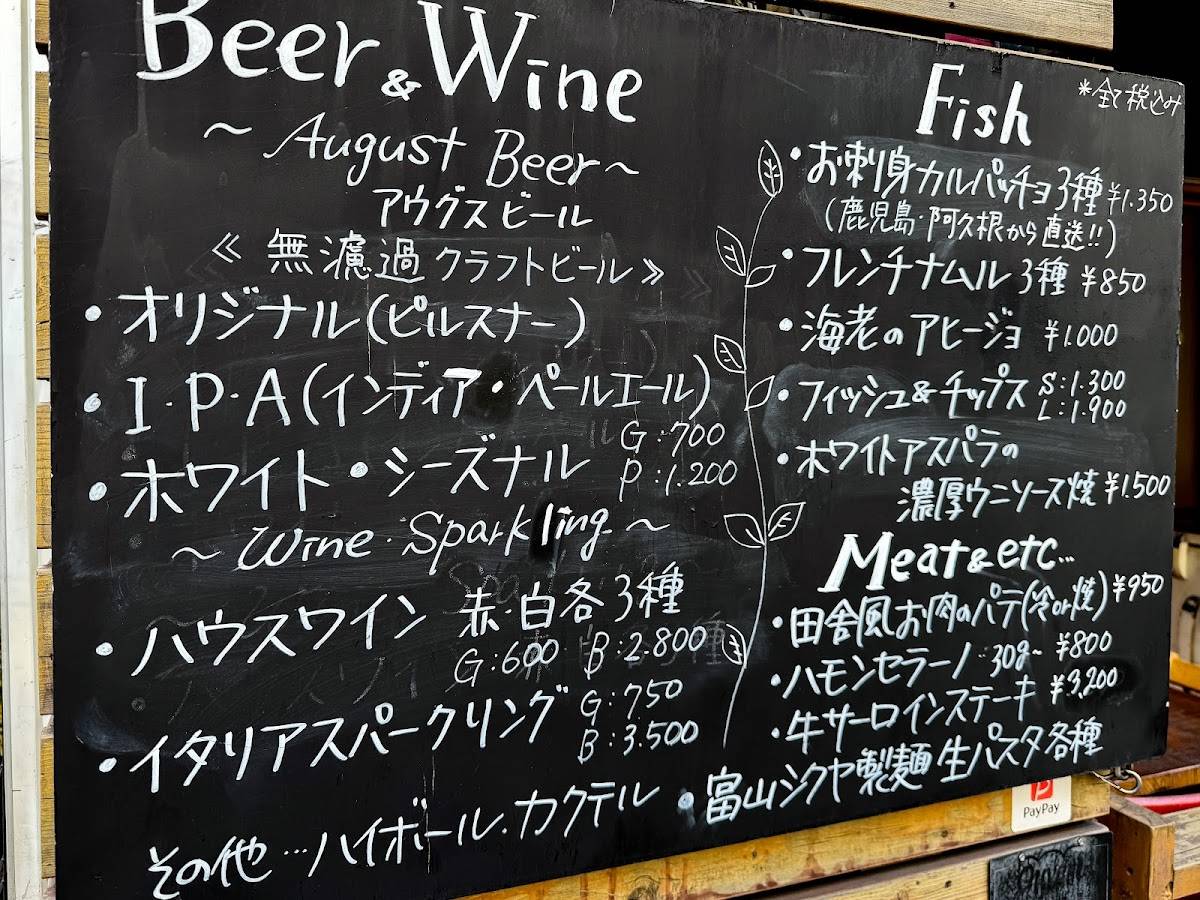 Beer & Wine
~ August Beer ~
アウグスビール
《 無濾過クラフトビール 》
・オリジナル(ピルスナー)
・I・P・A(インディア・ペールエール)
・ホワイト・シーズナル
G:700
P:1.200
~ Wine・Sparkling ~
・ハウスワイン 赤・白各3種
G:600 B:2.800
・イタリアスパークリング
G:750
B:3.500
その他…ハイボール・カクテル
Fish
*全て税込み
・お刺身カルパッチョ3種 ¥1.350
(鹿児島・阿久根から直送!!)
・フレンチナムル 3種 ¥850
・海老のアヒージョ ¥1.000
・フィッシュ&チップス S:1.300
L:1.900
・ホワイトアスパラの
濃厚ウニソース焼 ¥1.500
Meat & etc...
・田舎風お肉のパテ(冷or焼) ¥950
・ハモンセラーノ 30g~ ¥800
・牛サーロインステーキ ¥3,200
・富山シクヤ製麺 生パスタ各種
PayPay